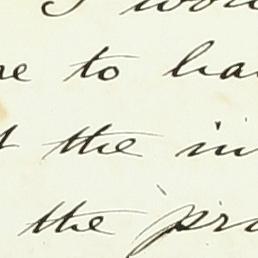 I wou
re to ha
t the in
the pro